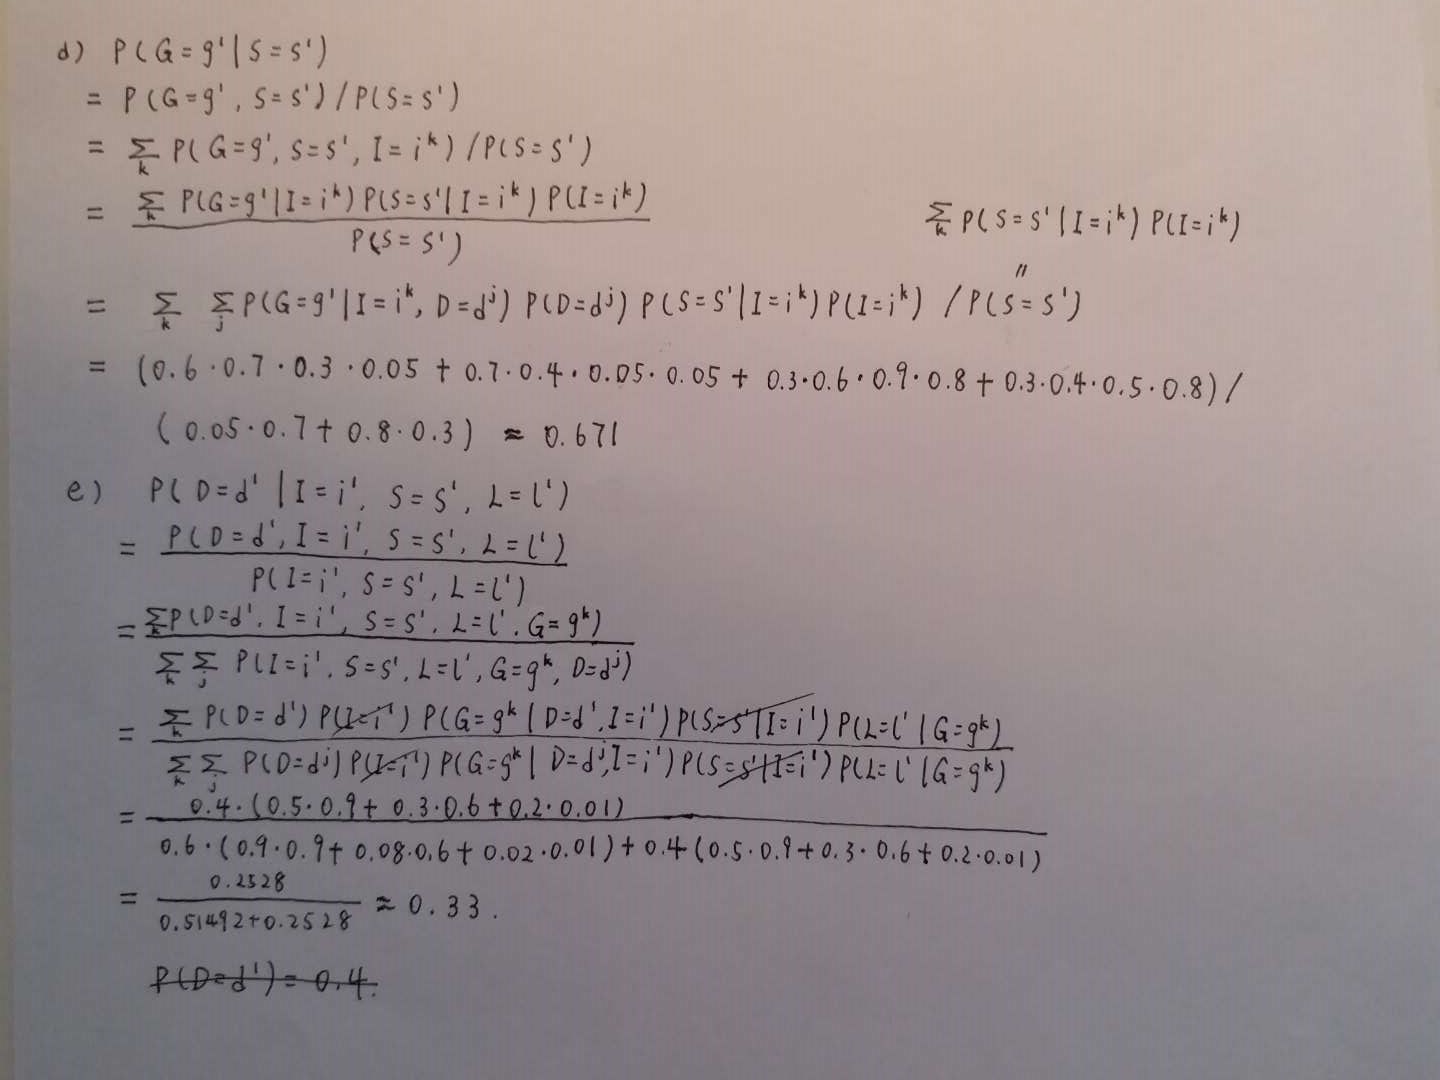 d) P(G=g'|S=s')
= P(G=g', S=s')/P(S=s')
= Σ_k P(G=g', S=s', I=i^k)/P(S=s')
= Σ_k P(G=g'|I=i^k) P(S=s'|I=i^k) P(I=i^k) / P(S=s')
Σ_k P(S=s'|I=i^k) P(I=i^k)
"
= Σ_k Σ_j P(G=g'|I=i^k, D=d^j) P(D=d^j) P(S=s'|I=i^k) P(I=i^k) / P(S=s')
= (0.6·0.7·0.3·0.05 + 0.7·0.4·0.05·0.05 + 0.3·0.6·0.9·0.8 + 0.3·0.4·0.5·0.8)/
(0.05·0.7+0.8·0.3) ≈ 0.671
e) P(D=d'|I=i', S=s', L=l')
= P(D=d', I=i', S=s', L=l') / P(I=i', S=s', L=l')
= Σ_k P(D=d', I=i', S=s', L=l', G=g^k) / Σ_k Σ_j P(I=i', S=s', L=l', G=g^k, D=d^j)
= Σ_k P(D=d') P(I=i') P(G=g^k|D=d', I=i') P(S=s'|I=i') P(L=l'|G=g^k) / Σ_k Σ_j P(D=d^j) P(I=i') P(G=g^k|D=d^j, I=i') P(S=s'|I=i') P(L=l'|G=g^k)
= 0.4·(0.5·0.9+0.3·0.6+0.2·0.01) / 0.6·(0.9·0.9+0.08·0.6+0.02·0.01)+0.4(0.5·0.9+0.3·0.6+0.2·0.01)
= 0.2528 / 0.51492+0.2528 ≈ 0.33.
P(D=d')=0.4.